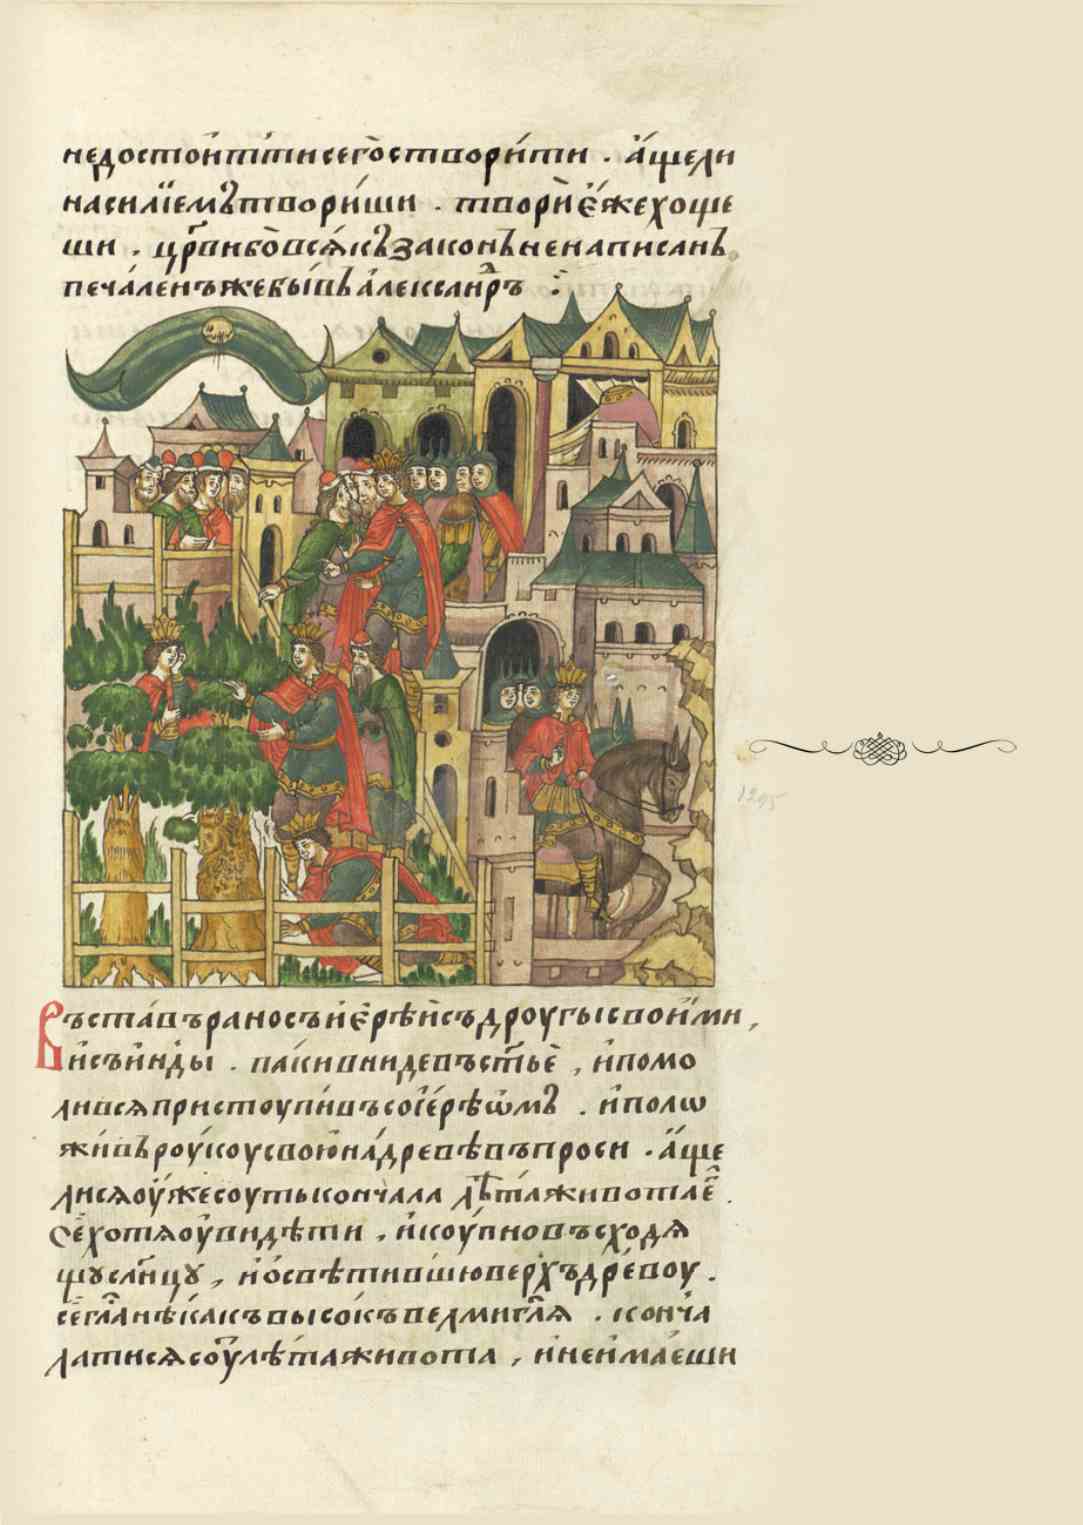 недостои́тъти сего̀ створи́ти . а́щели
насилїемъ твори́ши . творѝ е́же хоще
ши . цр҃ви бо̀ вся́къ законъ не написанъ
печа́ленъ же бы́въ а҆леѯанръ
Въста́въ рано съ и҆е҆рѣ́и съ дроугы свои́ми ,
и҆ съ и҆нды . паки вниде въ ст҃ьѐ , и҆ помо
лився пристоупи́въ со і҆е́рѣѡмъ . и҆ поло
жи́въ роу́коу свою̀ на́ древѣ въпроси . а́ще
ли ся оу҆́же соуть кончала лѣ́та живота
се́ хотя оу҆́видѣти , и҆ коу́пно въсходя
щꙋ сл҃нцꙋ , и҆ ѡ҆свѣтившю верхъ дре́воу .
се́ гла́ нѣ́какъ высокъ велми гл҃я . конча
ла ти ся соу҆ лѣ́та живота , и҆ не и҆ма́еши
1295